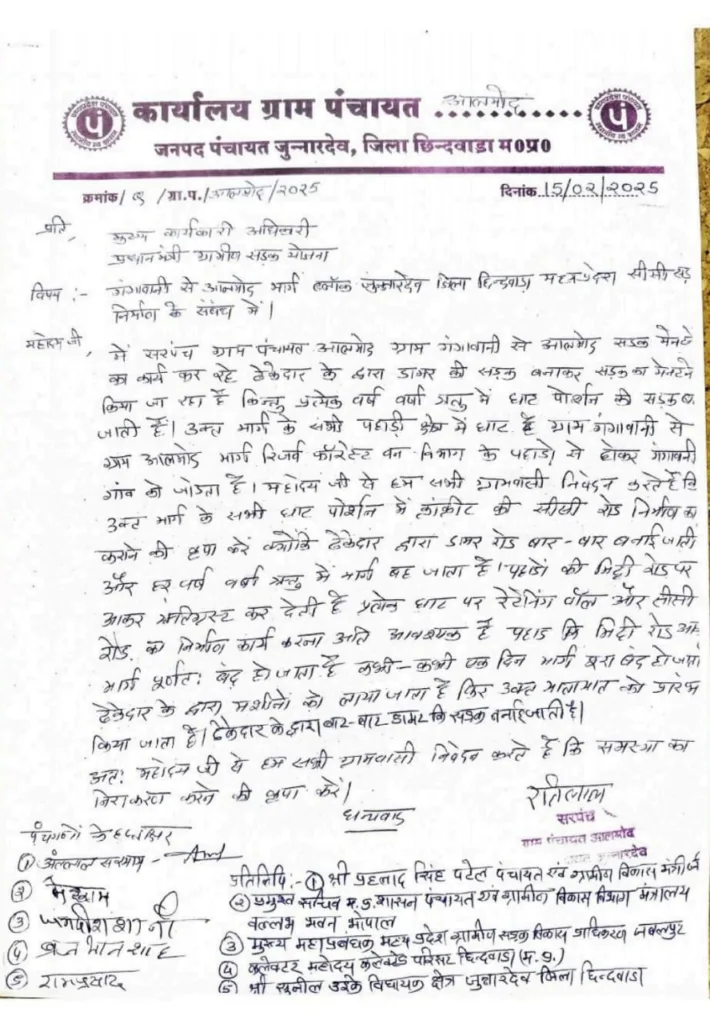 कार्यालय ग्राम पंचायत आलमोद
जनपद पंचायत जुन्नारदेव, जिला छिन्दवाडा म0प्र0
क्रमांक/ /ग्रा.प./आलमोद/2025 दिनांक 15/02/2025
प्रति,
मुख्य कार्यकारी अधिकारी
प्रधानमंत्री ग्रामीण सड़क योजना
विषय :- गंगावानी से आलमोद मार्ग ब्लॉक जुन्नारदेव जिला छिन्दवाड़ा मध्यप्रदेश सीसी रोड
निर्माण के संबंध में।
महोदय जी,
में सरपंच ग्राम पंचायत आलमोद ग्राम गंगावानी से आलमोद सडक मेनटे
का कार्य कर रहे ठेकेदार के द्वारा डामर की सड़क बनाकर सड़क का मेनटेन
किया जा रहा है किन्तु प्रत्येक वर्ष वर्षा ऋतु में घाट पोर्शन की सड़क ब
जाती है। उक्त मार्ग के सभी पहाडी क्षेत्र में घाट है ग्राम गंगावानी से
ग्राम आलमोद मार्ग रिजर्व फॉरेस्ट वन विभाग के पहाडो से होकर गंगावानी
गांव को जोडता है। महोदय जी से हम सभी ग्रामवासी निवेदन करते है कि
उक्त मार्ग के सभी घाट पोर्शन में कांक्रीट की सीसी रोड निर्माण का
कराने की कृपा करें क्योंकि ठेकेदार द्वारा डामर रोड बार-बार बनाई जाती
और हर वर्ष वर्षा ऋतु में मार्ग बह जाता है। पहाडो की मिट्टी रोड पर
आकर क्षतिग्रस्ट कर देती है प्रत्येक घाट पर रेटेनिंग वॉल और सीसी
रोड का निर्माण कार्य करना अति आवश्यक है पहाड कि मिट्टी रोड आ
मार्ग पूर्णत: बंद हो जाता है कभी-कभी एक दिन मार्ग पूरा बंद हो जाता
ठेकेदार के द्वारा मशीनों को लाया जाता है फिर उक्त यातायात को प्रारंभ
किया जाता है। ठेकेदार के द्वारा बार-बार डामर कि सड़क बनाई जाती है।
अत: महोदय जी से हम सभी ग्रामवासी निवेदन करते है कि समस्या का
निराकरण करने की कृपा करें।
धन्यवाद
रतिलाल
सरपंच
ग्राम पंचायत आलमोद
पंचगणों के हस्ताक्षर
①
②
③ जगदीश
④
⑤ रामप्रसाद
प्रतिलिपि :- ① श्री प्रहलाद सिंह पटेल पंचायत एवं ग्रामीण विकास मंत्री
② प्रमुख सचिव म.प्र. शासन पंचायत एवं ग्रामीण विकास विभाग मंत्रालय
वल्लभ भवन भोपाल
③ मुख्य महाप्रबंधक मध्य प्रदेश ग्रामीण सड़क विकास प्राधिकरण जबलपुर
④ कलेक्टर महोदय कलेक्ट्रेड परिसर छिन्दवाडा (म.प्र.)
⑤ श्री सुनील उईके विधायक क्षेत्र जुन्नारदेव जिला छिन्दवाडा